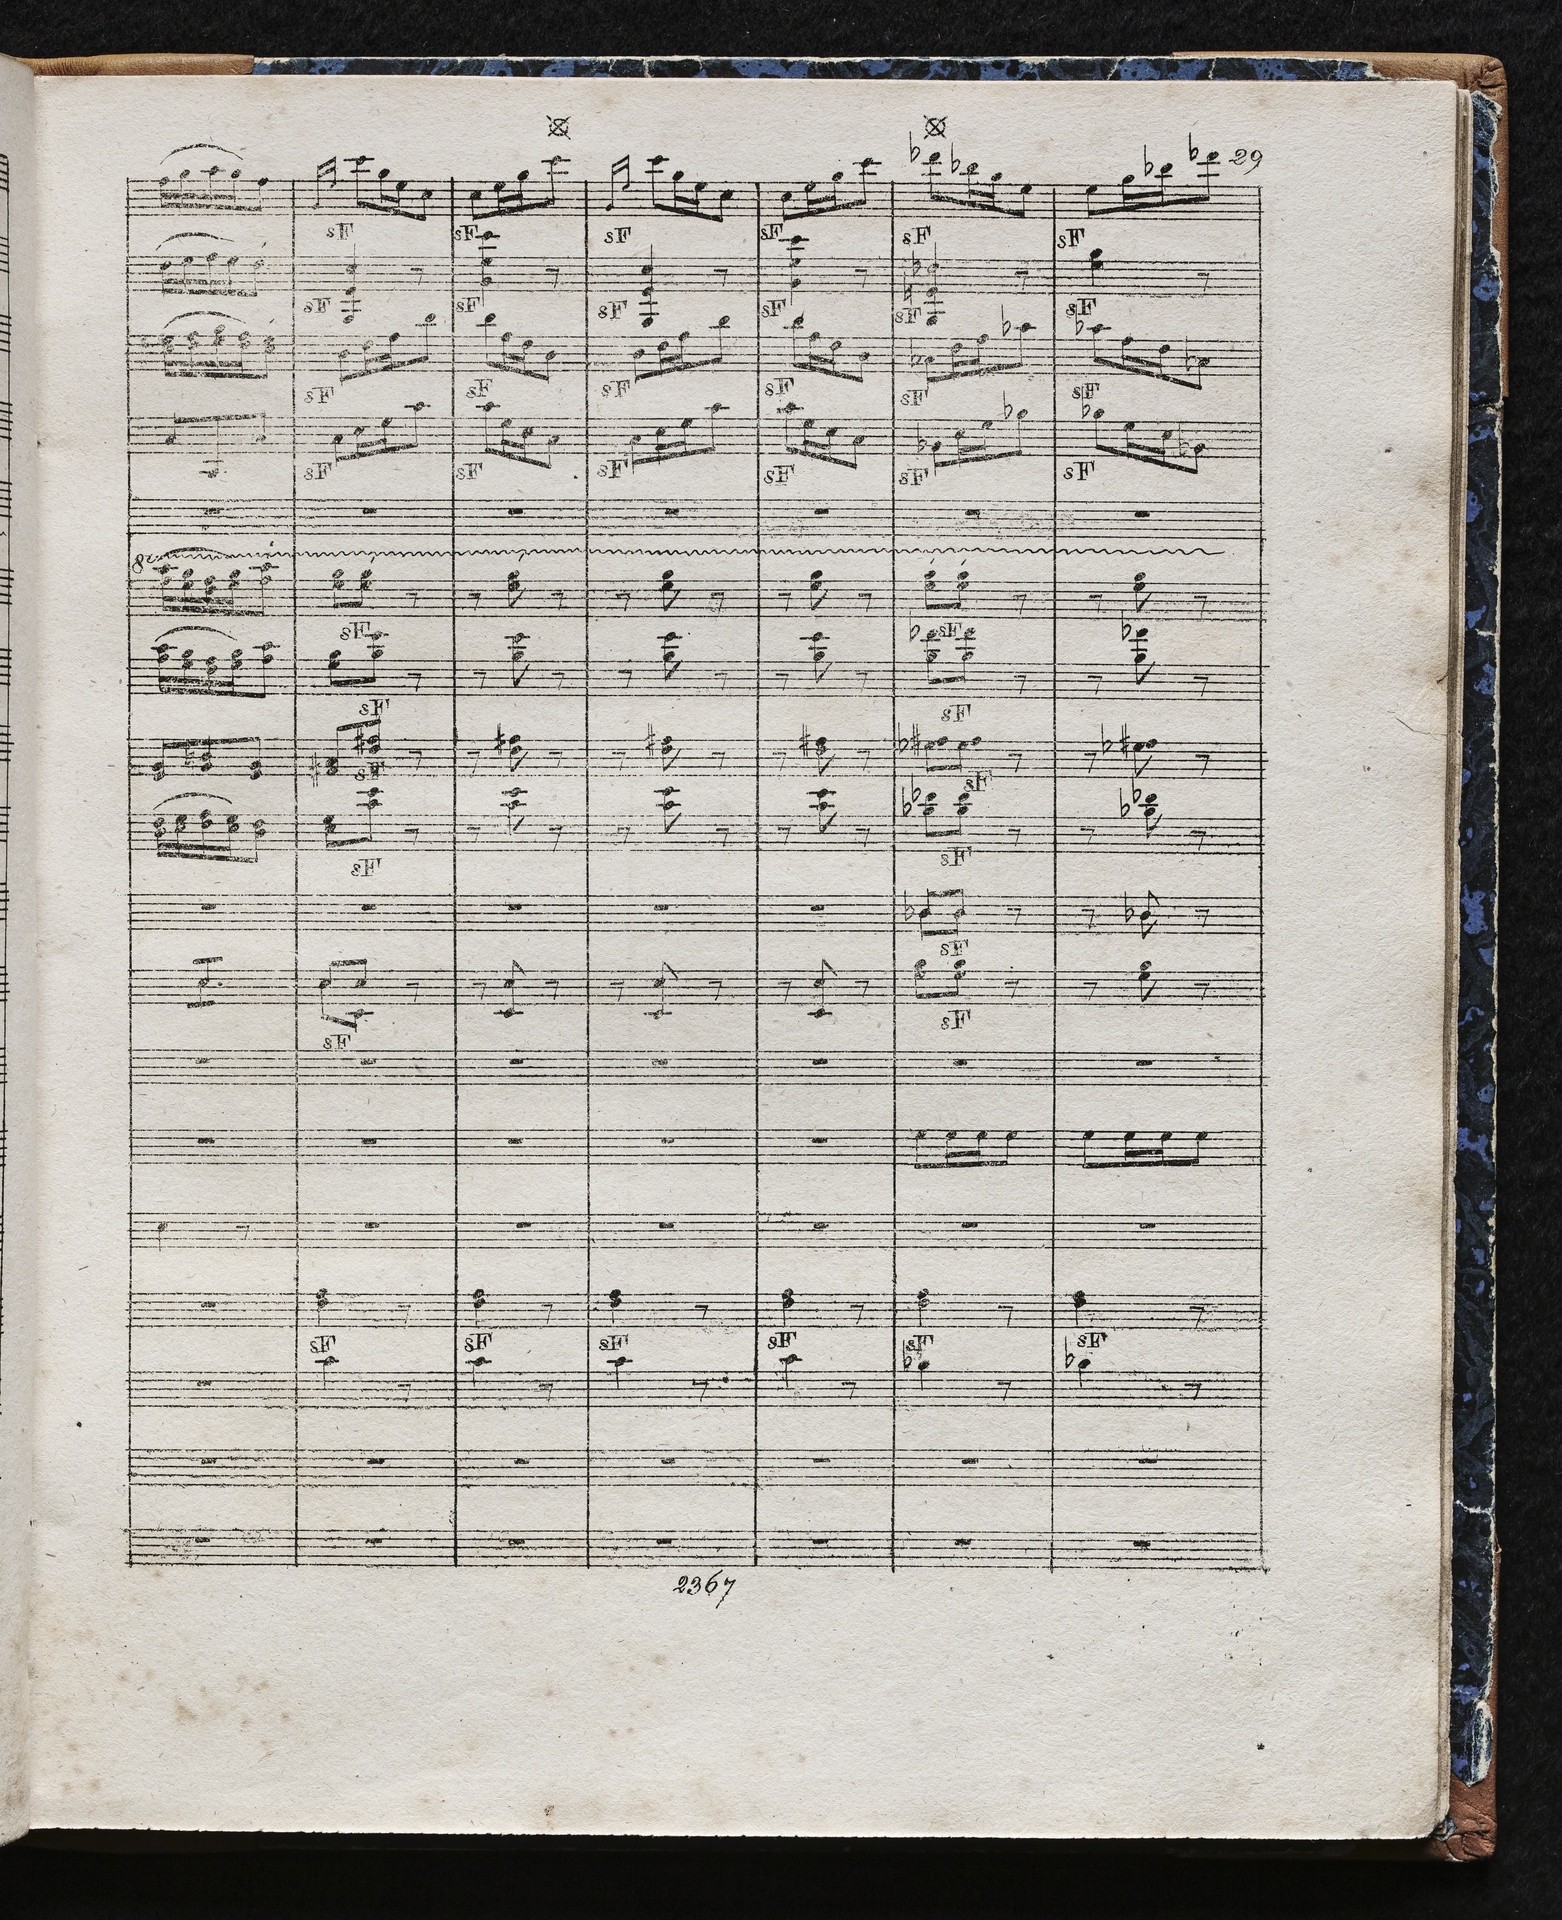 29
sF sF sF sF sF sF
sF sF sF sF sF sF
sF sF sF sF sF sF
sF sF sF sF sF sF
8va
sF sF
sF sF
sF sF
sF sF
sF
sF sF
sF sF sF sF sF sF
2367